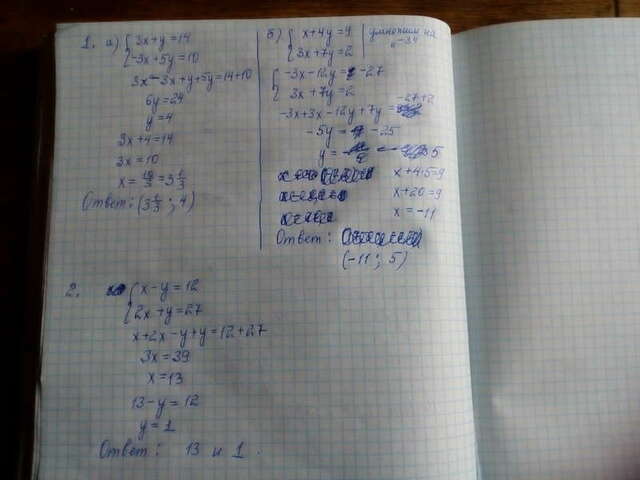 1. а) { 3x+y=14
-3x+5y=10
3x-3x+y+5y=14+10
6y=24
y=4
3x+4=14
3x=10
x=10/3=3 1/3
Ответ: (3 1/3; 4)
б) { x+4y=9 | умножим на
3x+7y=2 | "-3"
{ -3x-12y=-27
3x+7y=2
-3x+3x-12y+7y= -27+2
-5y= -25
y= 5
x+4·5=9
x+20=9
x=-11
Ответ:
(-11; 5)
2. { x-y=12
2x+y=27
x+2x-y+y=12+27
3x=39
x=13
13-y=12
y=1
Ответ: 13 и 1.